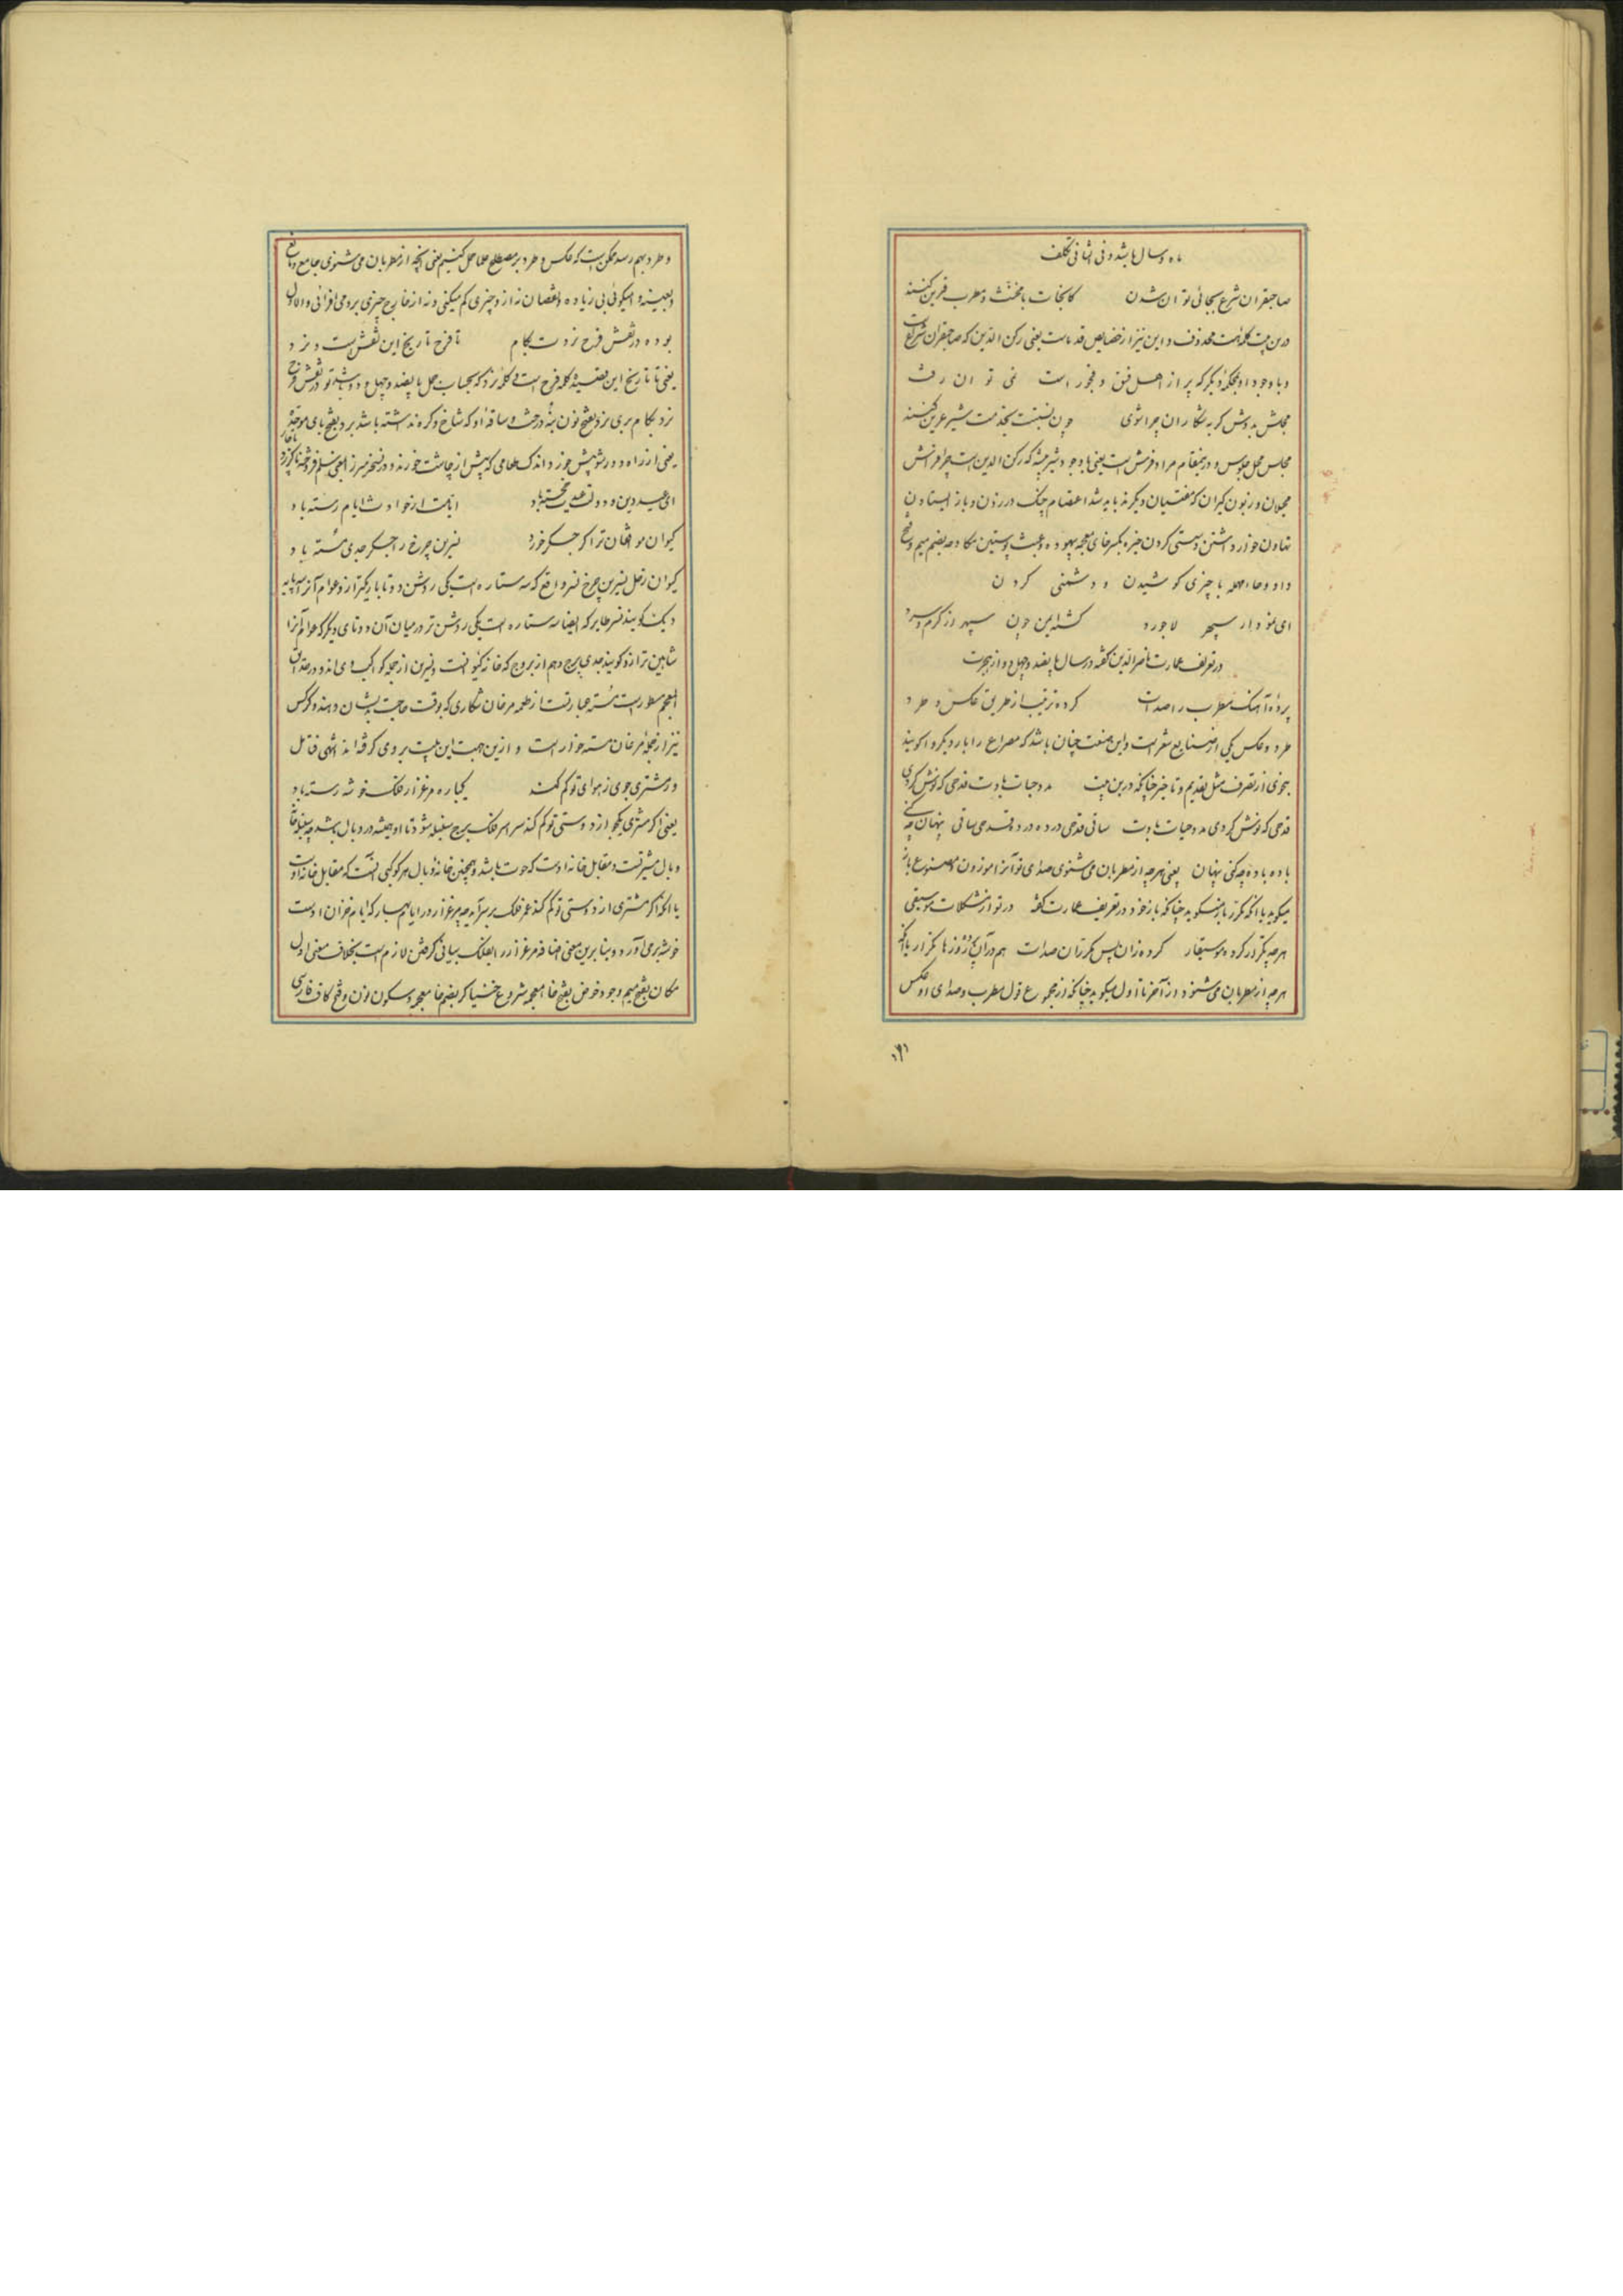 ماه و سال باشد و فی الثانی تکلف
صاحبقران شرع بجائی توان شدن کانجات با مخنث و مطرب قرین کنند
درین بیت کلمه است محذوف و این نیز از خصایص قدماست یعنی رکن الدین که صاحبقران شریعت
و با وجود او بمحکمهٔ دیگر که پر از اهل فسق و فجور است نمی توان رفت
مجلس بدوش گربه شکاران چرا شوی چون نسبتت بخدمت شیر عرین کنند
مجلس محل جلوس و درینمقام مراد فرش است یعنی با وجود شیر بیشه که رکن الدین است چرا فراش
محیلان و زبون گیران که مفتیان دیگرند باید شد اعتصام چنگ در زدن و باز ایستادن
تهاون خوار داشتن و سستی کردن خیره بکسر خای معجمه بیهوده و عبث پوستین مکاوحه بضم میم و فتح
واو و حاء مهمله با چیزی کوشیدن و دشمنی کردن
ای نمودار سپهر لاجورد گشته ایمن چون سپهر از گرم و سرد
در تعریف عمارت ناصرالدین گفته در سال پانصد و چهل و دو از هجرت
پردهٔ آهنگ مطرب را صدات کرده ترتیب از طریق عکس و طرد
طرد و عکس یکی از صنایع شعر است و این صنعت چنان باشد که مصراع را بار دیگر واگویند
بنحوی از تصرف مثل تقدیم و تاخیر چنانکه درین بیت مد و حیات بادت قدحی که نوش کردی
قدحی که نوش کردی مد و حیات بادت ساقی قدحی در ده در ده قدحی ساقی پنهان چه کنی
باده باده چه کنی پنهان یعنی هرچه از مطربان می شنوی صدای تو آنرا موزون و مصنوع باز
میگوید یا آنکه مکرر باز میگوید چنانکه باز خود در تعریف عمارت گفته در تو از مشکلات موسیقی
هرچه تکرار کرده موسیقار کرده زان پس مکرر آن صدات هم در آن پرده روزها تکرار یا آنکه
هرچه از مطربان می شنود از آخر تا اول میگوید چنانکه از مجموع قول مطرب و صدای او عکس
و طرد بهم رسد و ممکن است که عکس و طرد بر مصطلح علما حمل کنیم یعنی آنچه از مطربان می شنوی جامع و مانع
و بعینه وا میگوئی بی زیاده و نقصان نه از او چیزی کم میکنی و نه از خارج چیزی برو می افزائی والاول
بوده در نقش فرح نزدت بکام تا فرح تاریخ این نقش است و نزد
یعنی تا تاریخ این قصیده کلمه فرح است و کلمه نزد که بحساب جمل پانصد و چهل و دو باشد تو در نقش فرح
نزد بکام بری نزد بفتح نون تنهٔ درخت و ساقه او که شاخ و گره نداشته باشد برد بفتح بای موحده
یعنی از راه دور شو پیش خور د اندک طعامی که پیش از چاشت خورند و در نسخه میرزا
ای عید دین و دولت عیدت خجسته باد ایامت از حوادث ایام رسته باد
کیوان موافقان ترا گر جگر خورد نسرین چرخ را جگر جدی مسته باد
کیوان زحل نسرین چرخ نسر واقع که سه ستاره است یکی روشن و دو تا باریکتر از و عوام آنرا سه پایه
دیگ گویند نسر طایر که ایضا سه ستاره است یکی روشن تر در میان آن دو تای دیگر که عوام آنرا
شاهین ترازو گویند جدی برج دهم از بروج که خانه کیوانست و نسرین از جمله کواکب وی اند و در حدائق
المعجم مسطور است مسته عبارتست از طعمه مرغان شکاری که بوقت حاجت بدیشان دهند و کرکس
نیز از جمله مرغان مسته خوار است و از این جهت این بیت بر وی گرفته اند انتهی فتأمل
ور مشتری جوی ز هوای تو کم کند یکباره مرغزار فلک خوشه رسته باد
یعنی اگر مشتری یکجو از دوستی تو کم کند سراسر فلک برج سنبله شود تا او همیشه در وبال باشد چه سنبله خانه
وبال مشتریست و مقابل خانه اوست که حوت باشد و همچنین خانه وبال هر کوکبی آنست که مقابل خانه اوست
یا آنکه اگر مشتری از دوستی تو کم کند عمر فلک بر سر آید چه مرغزار در ایام بهار که ایام خزان اوست
خوشه برمی آورد و بنا برین معنی اضافه مرغزار را بفلک بیانی گرفتن لازم است بخلاف معنی اول
مکان بفتح میم وجود خوض بفتح خاء معجمه شروع خنیاگر بضم خاء معجمه و سکون نون و فتح کاف فارسی